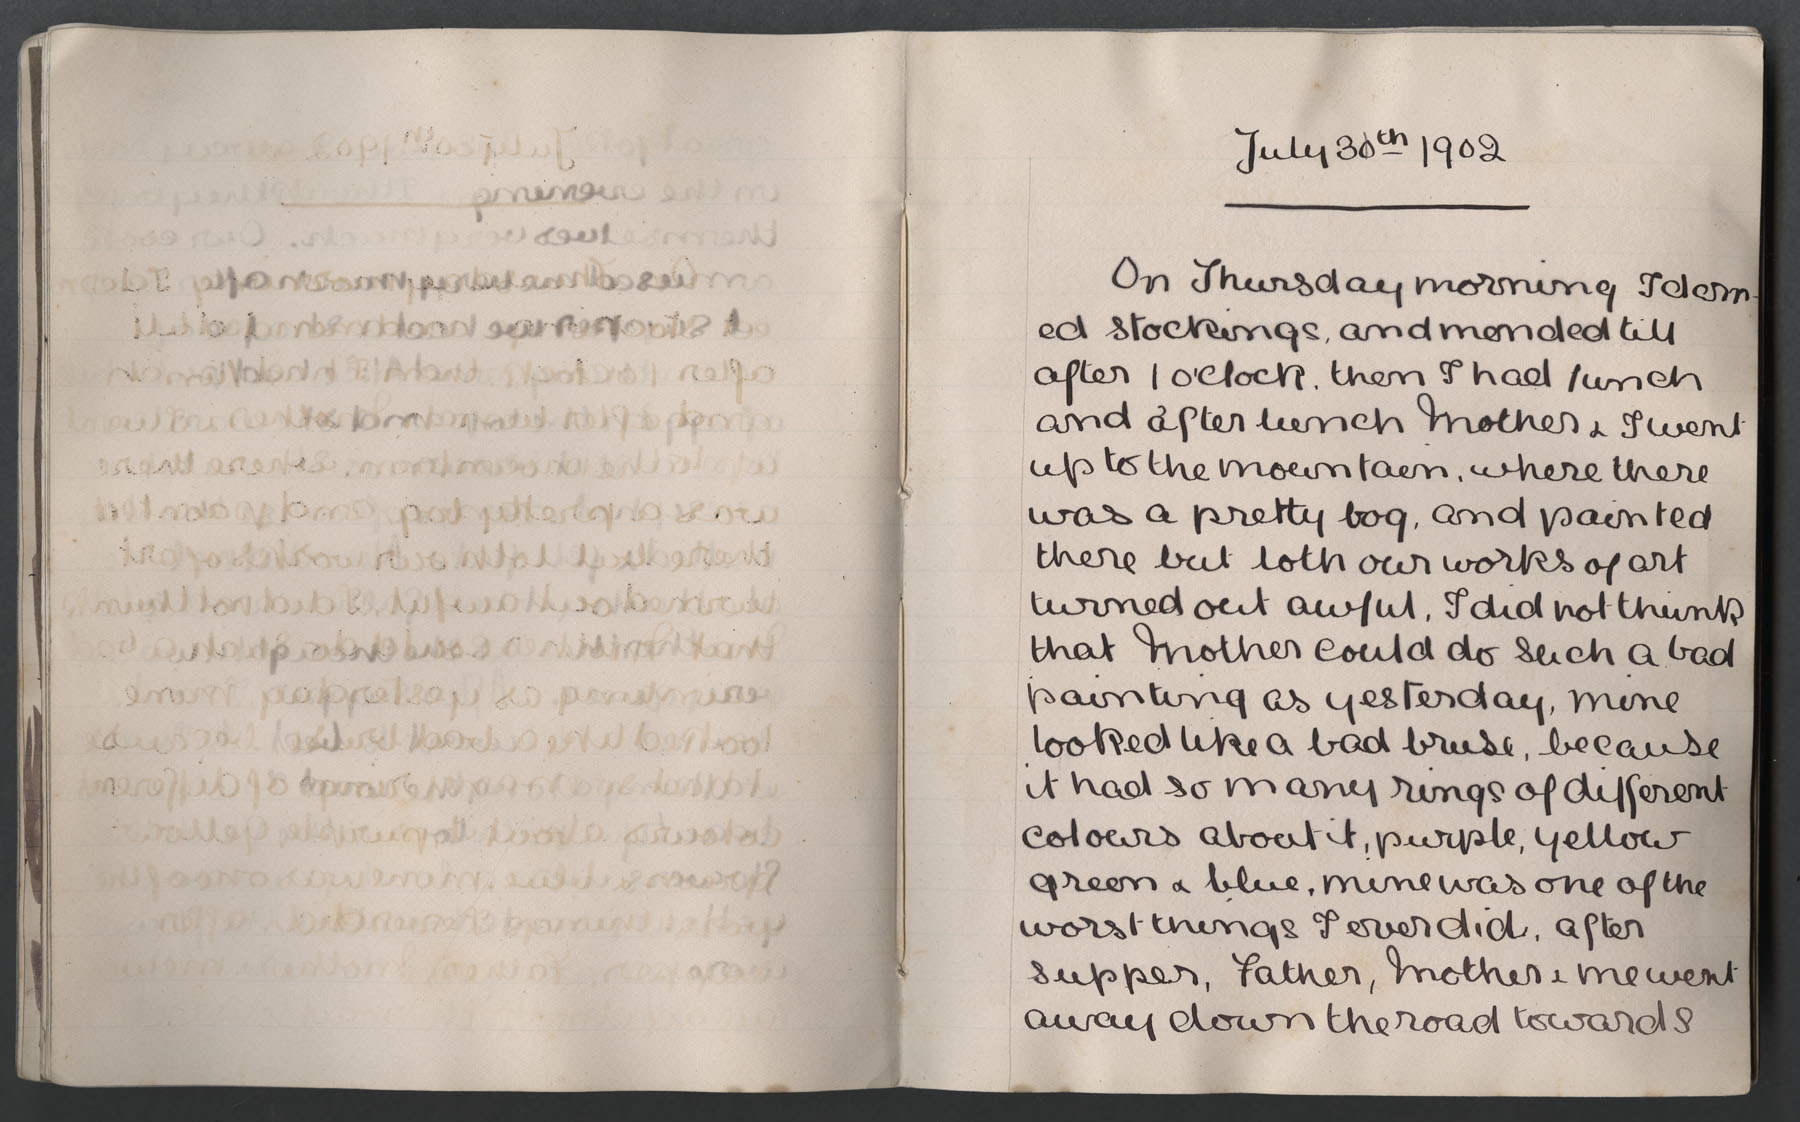 July 30th 1902
On Thursday morning I darn-
ed stockings, and mended till
after 1 o'clock. then I had lunch
and after lunch Mother & I went
up to the mountain, where there
was a pretty bog, and painted
there but both our works of art
turned out awful, I did not think
that Mother could do such a bad
painting as yesterday, mine
looked like a bad bruse, because
it had so many rings of different
colours about it, purple, yellow
green & blue, mine was one of the
worst things I ever did, after
supper, Father, Mother & me went
away down the road towards